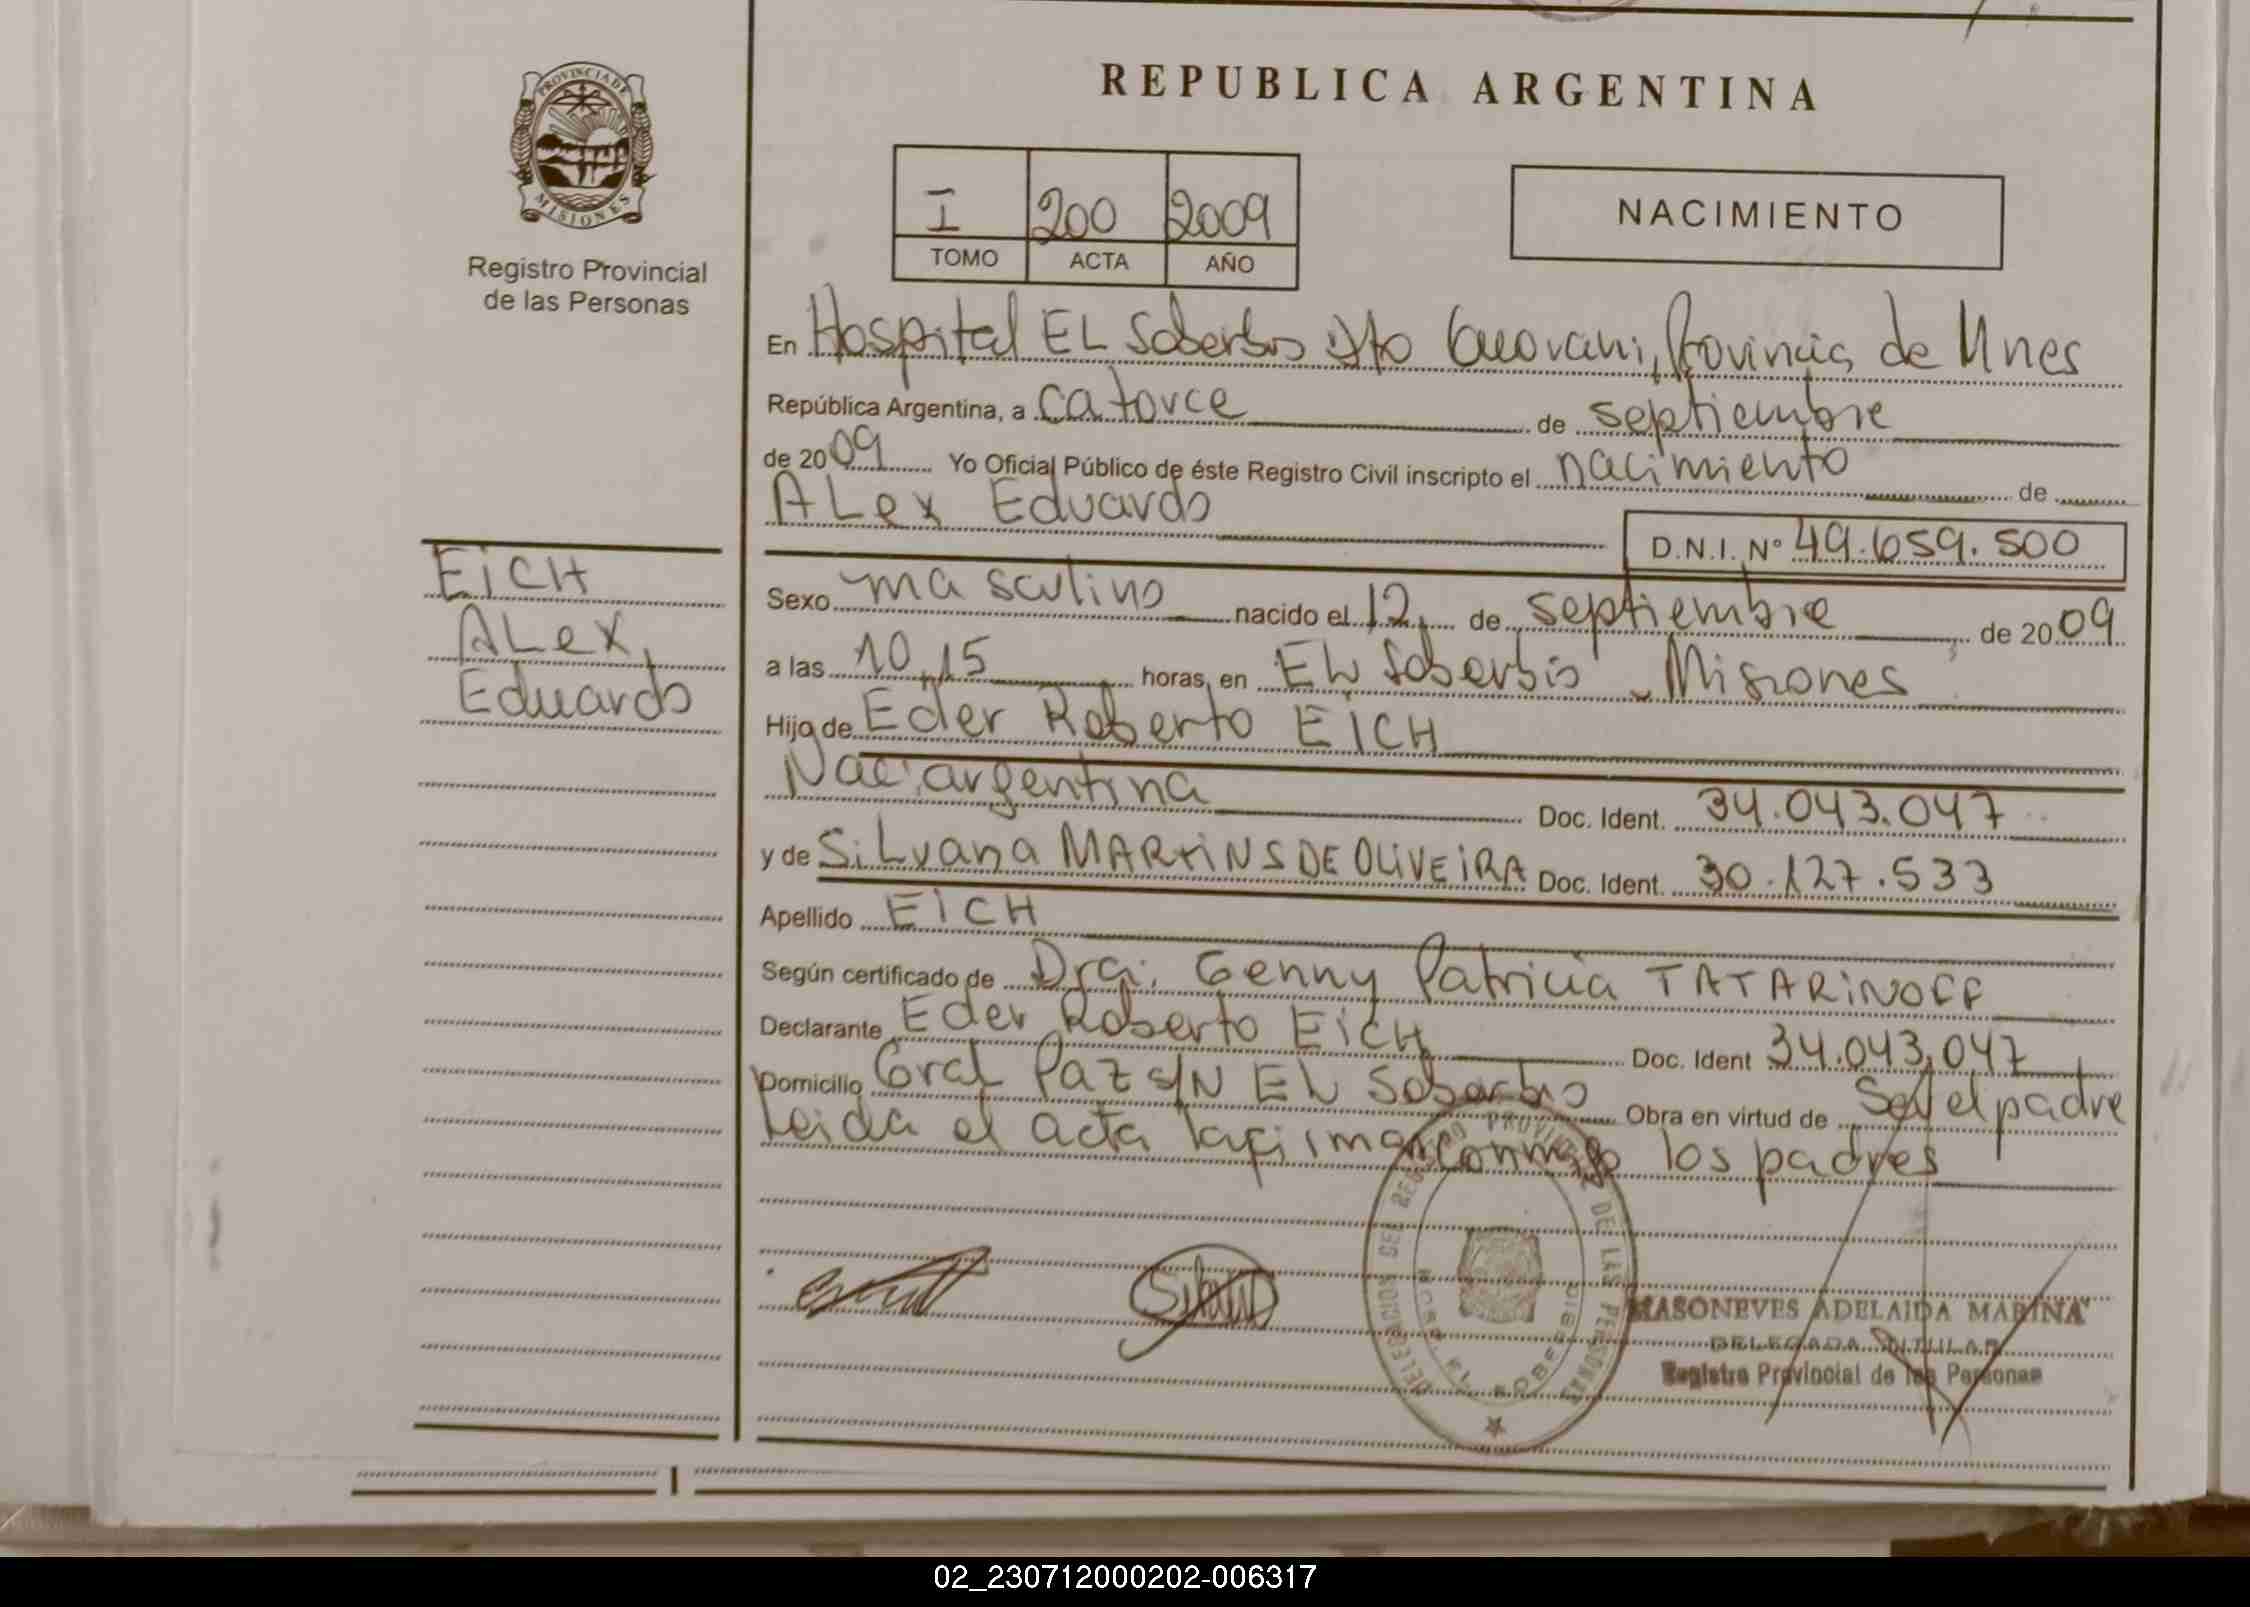 REPUBLICA ARGENTINA
PROVINCIA DE
MISIONES
Registro Provincial
de las Personas
I 200 2009
TOMO ACTA AÑO
NACIMIENTO
En Hospital EL Soberbio Dto Guarani, Provincia de Mnes
República Argentina, a catorce de septiembre
de 2009 Yo Oficial Público de éste Registro Civil inscripto el nacimiento de
ALex Eduardo
D.N.I. Nº 49.659.500
EiCH
ALex
Eduardo
Sexo masculino nacido el 12 de septiembre de 2009
a las 10,15 horas, en EL Soberbio - Misiones
Hijo de Eder Roberto EiCH
Nac. argentina Doc. Ident. 34.043.047
y de SiLvana MARtiNS DE OLiVEiRA Doc. Ident. 30.127.533
Apellido EiCH
Según certificado de Dra. Genny Patricia TATARiNOFF
Declarante Eder Roberto EiCH Doc. Ident 34.043.047
Domicilio Gral Paz S/N EL Soberbio Obra en virtud de Ser el padre
Leida el acta la firman conmigo los padres
DELEGACION DEL REGISTRO PROVINCIAL DE LAS PERSONAS
HOSP. EL SOBERBIO
MASONEVES ADELAIDA MARINA
DELEGADA TITULAR
Registro Provincial de las Personas
02_230712000202-006317